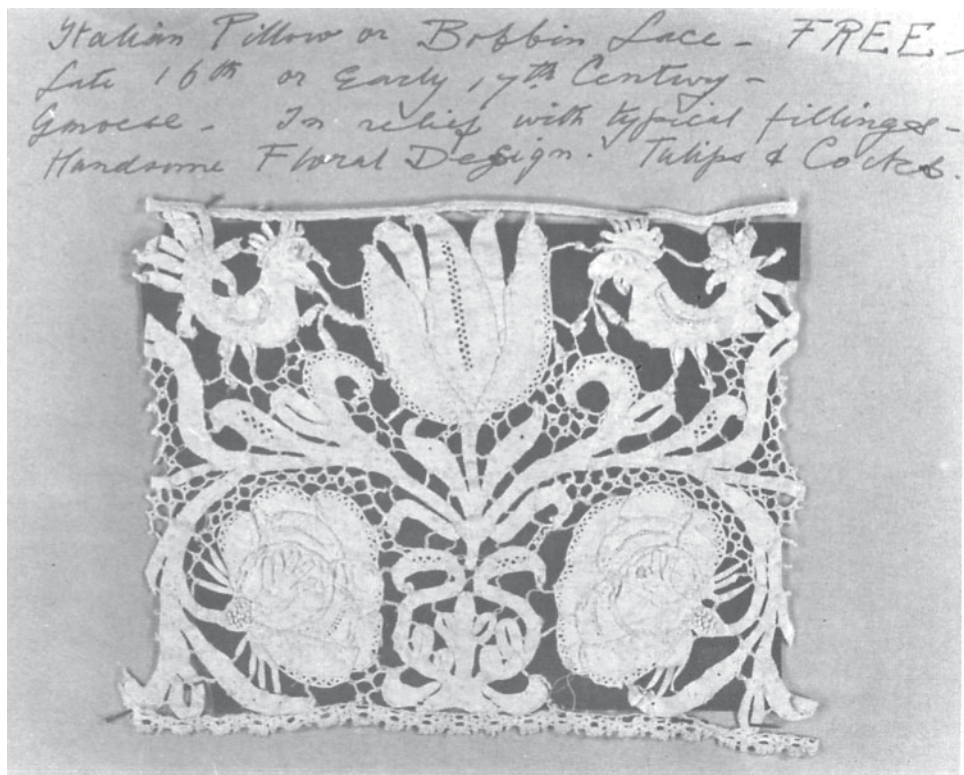 Italian Pillow or Bobbin Lace - FREE -
Late 16th or Early 17th Century -
Genoese - In relief with typical fillings -
Handsome Floral Design. Tulips & Cocks.